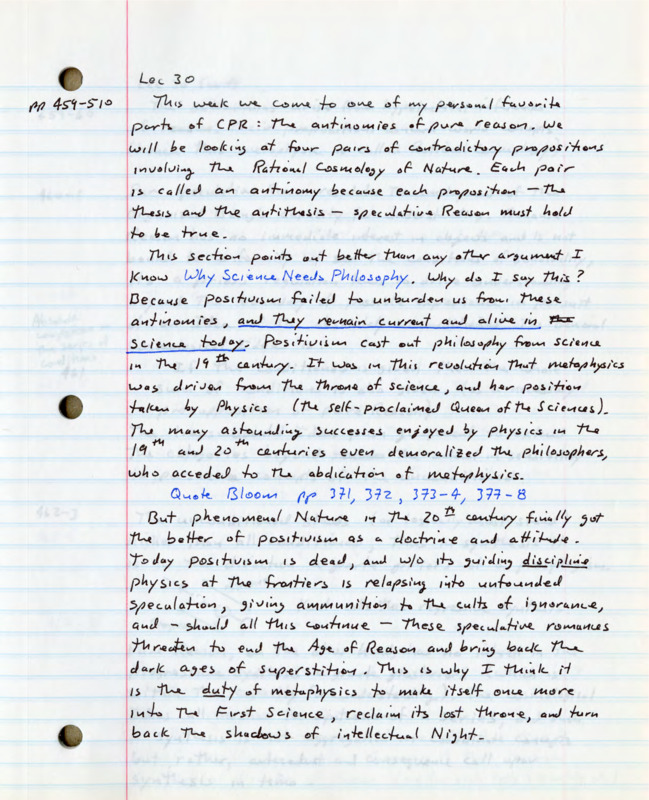 Lec 30
pp 459-510 This week we come to one of my personal favorite
parts of CPR: the antinomies of pure reason. We
will be looking at four pairs of contradictory propositions
involving the Rational Cosmology of Nature. Each pair
is called an antinomy because each proposition — the
thesis and the antithesis — speculative Reason must hold
to be true.
This section points out better than any other argument I
know Why Science Needs Philosophy. Why do I say this?
Because positivism failed to unburden us from these
antinomies, and they remain current and alive in the
science today. Positivism cast out philosophy from science
in the 19th century. It was in this revolution that metaphysics
was driven from the throne of science, and her position
taken by Physics (the self-proclaimed Queen of the Sciences).
The many astounding successes enjoyed by physics in the
19th and 20th centuries even demoralized the philosophers,
who acceded to the abdication of metaphysics.
Quote Bloom pp 371, 372, 373-4, 377-8
But phenomenal Nature in the 20th century finally got
the better of positivism as a doctrine and attitude.
Today positivism is dead, and w/o its guiding discipline
physics at the frontiers is relapsing into unfounded
speculation, giving ammunition to the cults of ignorance,
and - should all this continue - these speculative romances
threaten to end the Age of Reason and bring back the
dark ages of superstition. This is why I think it
is the duty of metaphysics to make itself once more
into the First Science, reclaim its lost throne, and turn
back the shadows of intellectual Night.